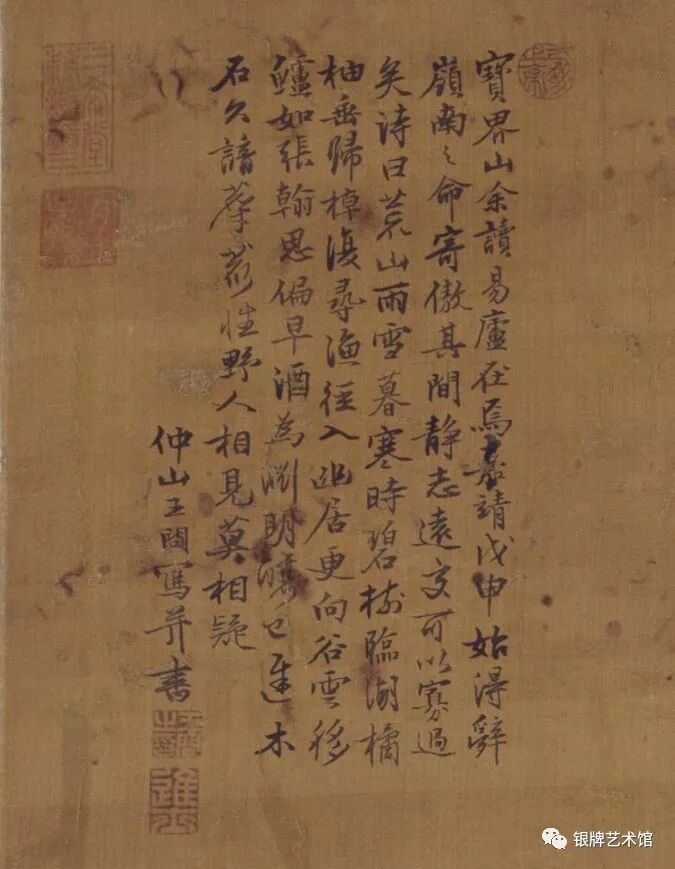 寶界山余讀易廬在焉嘉靖戊申始得辭
嶺南之命寄傲其間靜志遠交可以寡過
矣詩曰荒山雨雪暮寒時碧樹臨湖橘
柚垂歸棹復尋漁徑入幽居更向谷雲移
鱸如張翰思偏早酒為淵明釀已遲木
石久諳麋鹿性野人相見莫相疑
仲山王問寫并書
银牌艺术馆